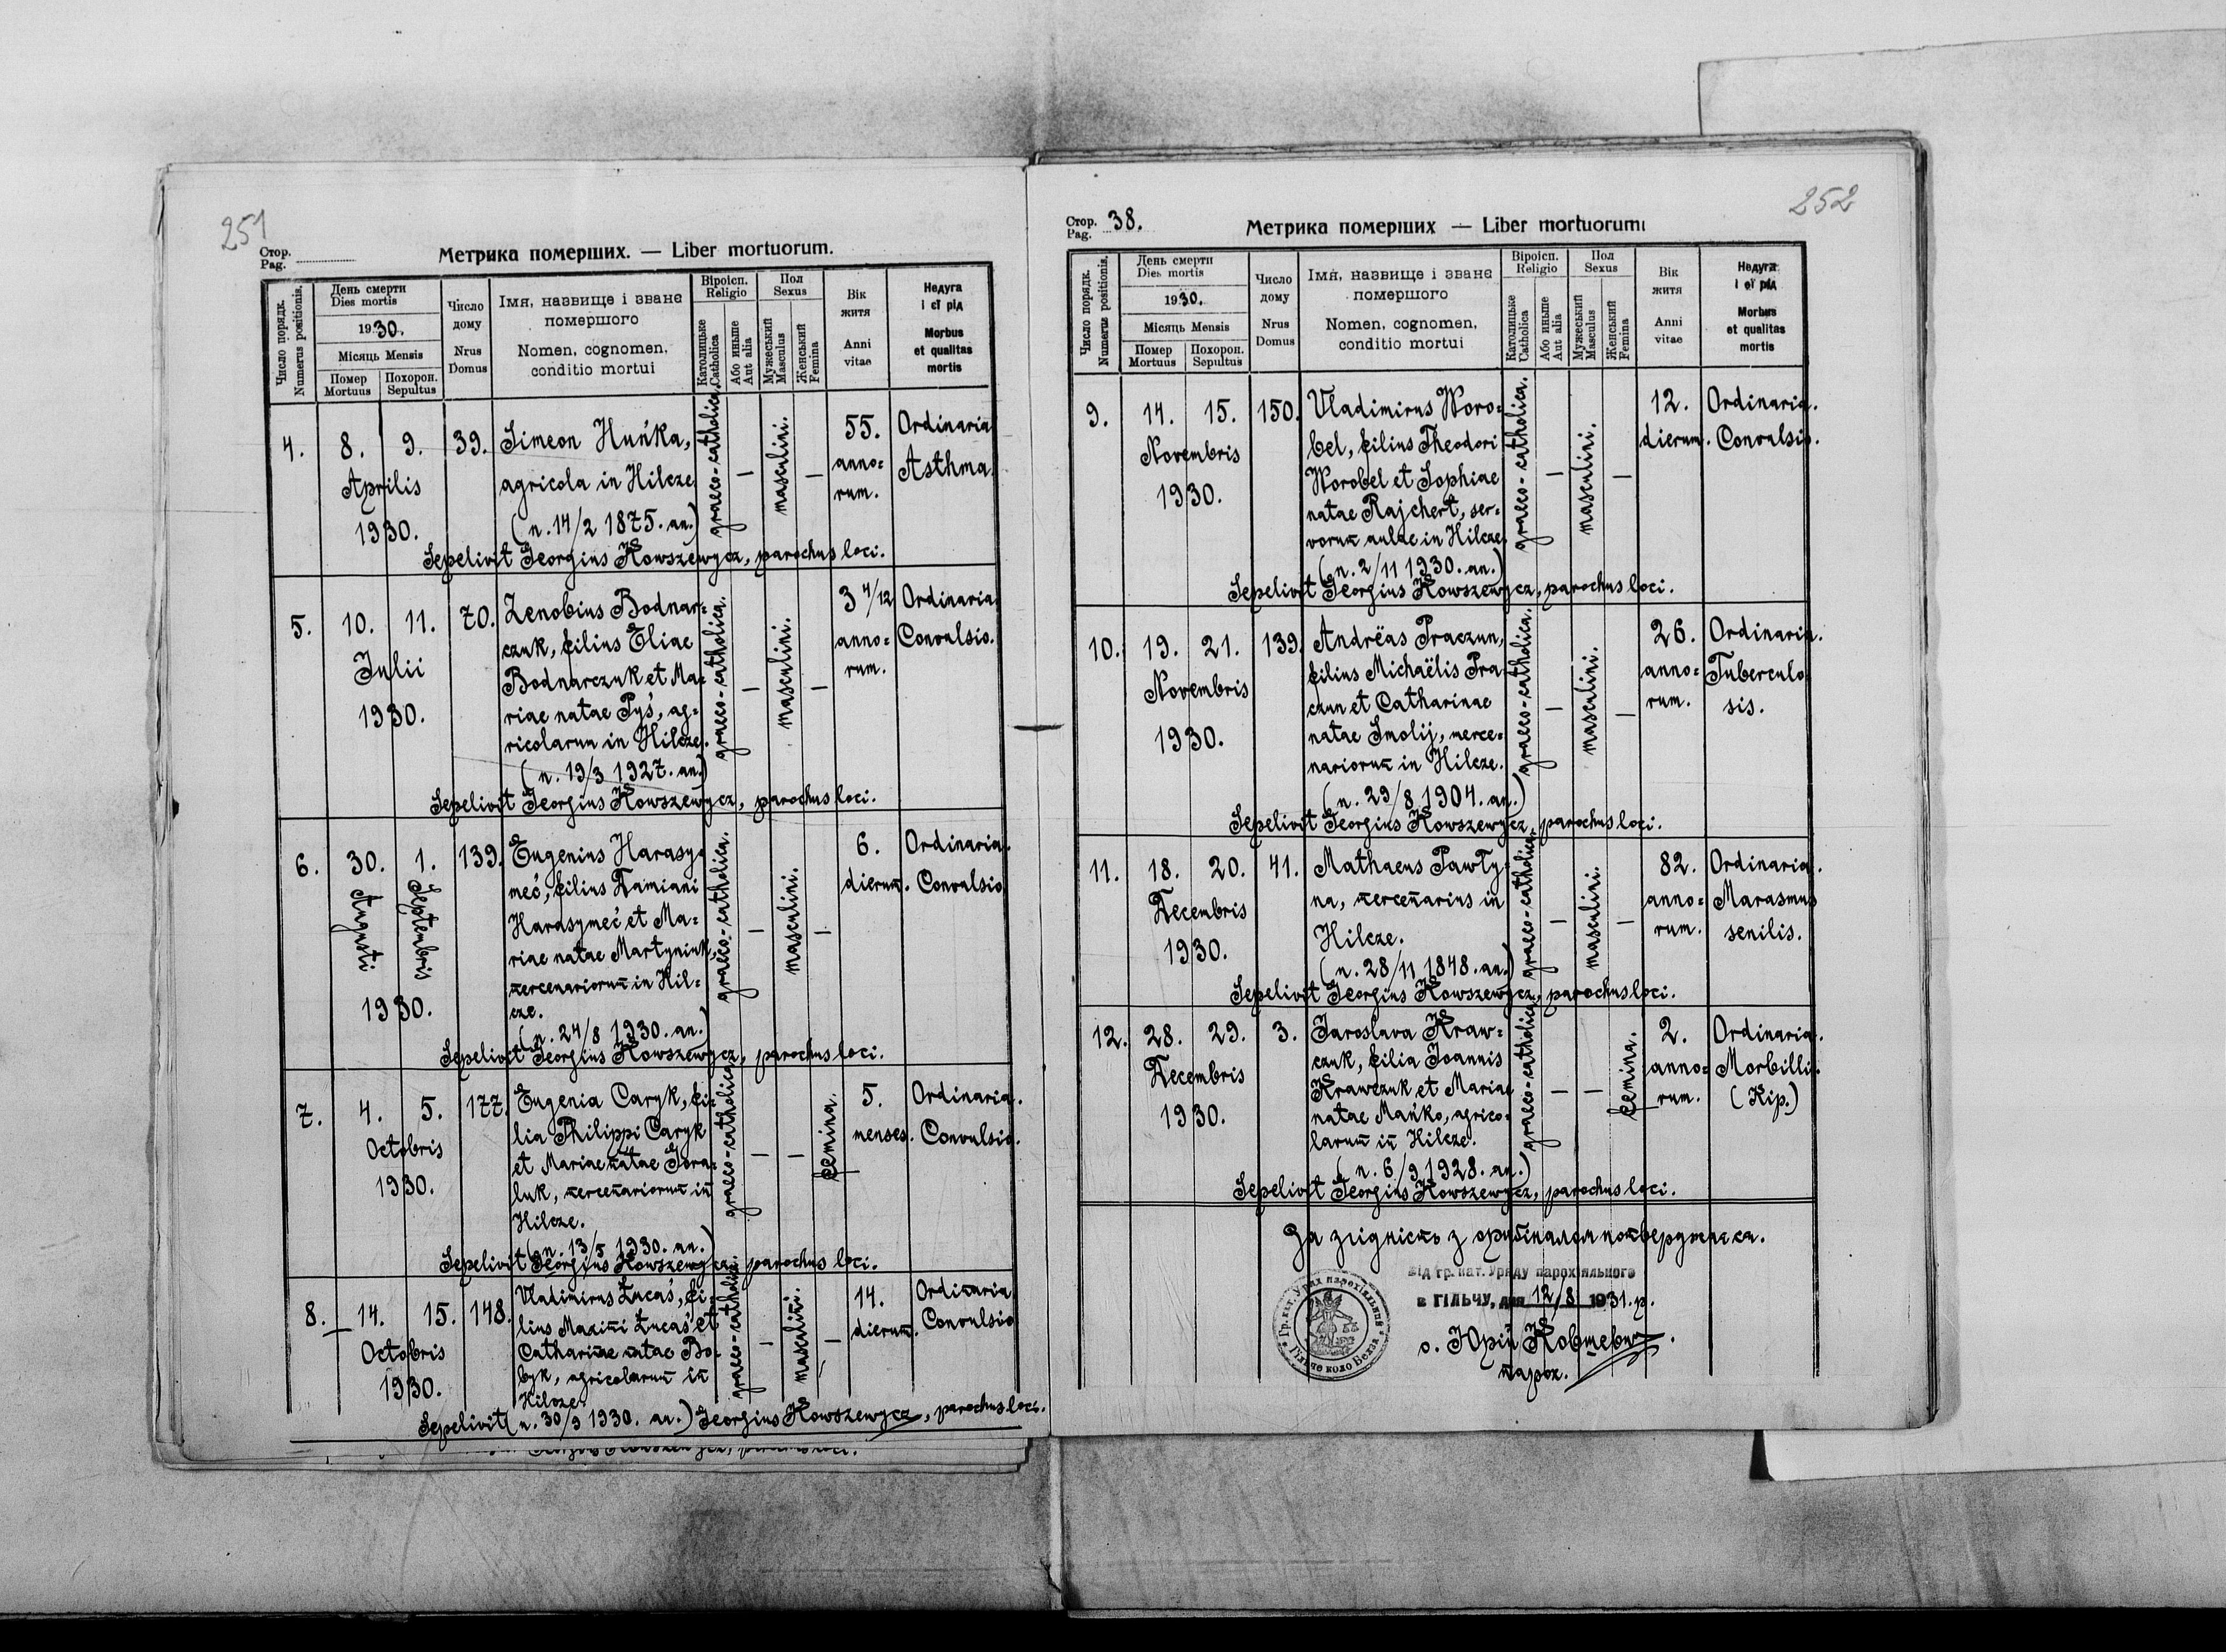 251
Стор.
Pag.
Метрика померших. — Liber mortuorum.
Число порядк.
Numerus positionis.
День смерти
Dies mortis
1930.
Місяць Mensis
Помер
Mortuus
Похорон.
Sepultus
Число
дому
Nrus
Domus
Імя, назвище і зване
помершого
Nomen, cognomen,
conditio mortui
Віроісп.
Religio
Католицьке
Catholica
Або иньше
Aut alia
Пол
Sexus
Мужеський
Masculus
Женський
Femina
Вік
житя
Anni
vitae
Недуга
і єї рід
Morbus
et qualitas
mortis
4.
8. 9.
Aprilis
1930.
39.
Simeon Huńka,
agricola in Hilcze
(n. 14/2 1875. an.)
graeco-catholica.
—
masculini.
—
55.
anno=
rum.
Ordinaria
Asthma.
Sepelivit Georgius Kowszewycz, parochus loci.
5.
10. 11.
Julii
1930.
70.
Zenobius Bodnar=
czuk, filius Eliae
Bodnarczuk et Ma=
riae natae Pyś, ag=
ricolarum in Hilcze.
(n. 19/3 1927. an.)
graeco-catholica.
—
masculini.
—
3 4/12
anno=
rum.
Ordinaria
Convulsio.
Sepelivit Georgius Kowszewycz, parochus loci.
6.
30. 1.
Augusti
Septembris
1930.
139.
Eugenius Harasy=
meć, filius Damiani
Harasymeć et Ma=
riae natae Martyniuk,
mercenariorum in Hil=
cze.
(n. 24/8 1930. an.)
graeco-catholica.
—
masculini.
—
6.
dierum.
Ordinaria.
Convulsio
Sepelivit Georgius Kowszewycz, parochus loci.
7.
4. 5.
Octobris
1930.
177.
Eugenia Caryk, fi=
lia Philippi Caryk
et Mariae natae Gora=
luk, mercenariorum in
Hilcze.
(n. 13/5 1930. an.)
graeco-catholica
—
—
femina.
5.
menses.
Ordinaria.
Convulsio.
Sepelivit Georgius Kowszewycz, parochus loci.
8.
14. 15.
Octobris
1930.
148.
Vladimirus Łucaś, fi=
lius Maximi Łucaś et
Catharinae natae Bo=
byk, agricolarum in
Hilcze.
graeco-catholica.
—
masculini.
—
14.
dierum.
Ordinaria
Convulsio
Sepelivit (n. 30/9 1930. an.) Georgius Kowszewycz, parochus loci.
252
Стор.
Pag. 38.
Метрика померших — Liber mortuorum
Число порядк.
Numerus positionis.
День смерти
Dies mortis
1930.
Місяць Mensis
Помер
Mortuus
Похорон.
Sepultus
Число
дому
Nrus
Domus
Імя, назвище і зване
помершого
Nomen, cognomen,
conditio mortui
Віроісп.
Religio
Католицьке
Catholica
Або иньше
Aut alia
Пол
Sexus
Мужеський
Masculus
Женський
Femina
Вік
житя
Anni
vitae
Недуга
і єї рід
Morbus
et qualitas
mortis
9.
14. 15.
Novembris
1930.
150.
Vladimirus Woro=
bel, filius Theodori
Worobel et Sophiae
natae Rajchert, ser=
vorum aulae in Hilcze.
(n. 2/11 1930. an.)
graeco-catholica.
—
masculini.
—
12.
dierum.
Ordinaria.
Convulsio.
Sepelivit Georgius Kowszewycz, parochus loci.
10.
19. 21.
Novembris
1930.
139.
Andrëas Praczun,
filius Michaëlis Pra
czun et Catharinae
natae Smolij, merce=
nariorum in Hilcze.
(n. 29/8 1904. an.)
graeco-catholica.
—
masculini.
—
26.
anno=
rum.
Ordinaria.
Tuberculo
sis.
Sepelivit Georgius Kowszewycz, parochus loci.
11.
18. 20.
Decembris
1930.
41.
Mathaeus Pawły=
na, mercenarius in
Hilcze.
(n. 28/11 1848. an.)
graeco-catholica.
—
masculini.
—
82.
anno=
rum.
Ordinaria.
Marasmus
senilis.
Sepelivit Georgius Kowszewycz, parochus loci.
12.
28. 29.
Decembris
1930.
3.
Jaroslava Kraw=
czuk, filia Joannis
Krawczuk et Mariae
natae Mańko, agrico=
larum in Hilcze.
(n. 6/9 1928. an.)
graeco-catholica
—
—
femina.
2.
anno=
rum.
Ordinaria.
Morbilli.
(Kip.)
Sepelivit Georgius Kowszewycz, parochus loci.
За згідність з оригіналом потверджаєся.
Від гр. кат. Уряду парохіяльного
в ГІЛЬЧУ, дня 12/8 1931. р.
о. Юрій Ковшевич.
парох.
Гр. кат. Уряд парохіяльний
Гільче коло Белза